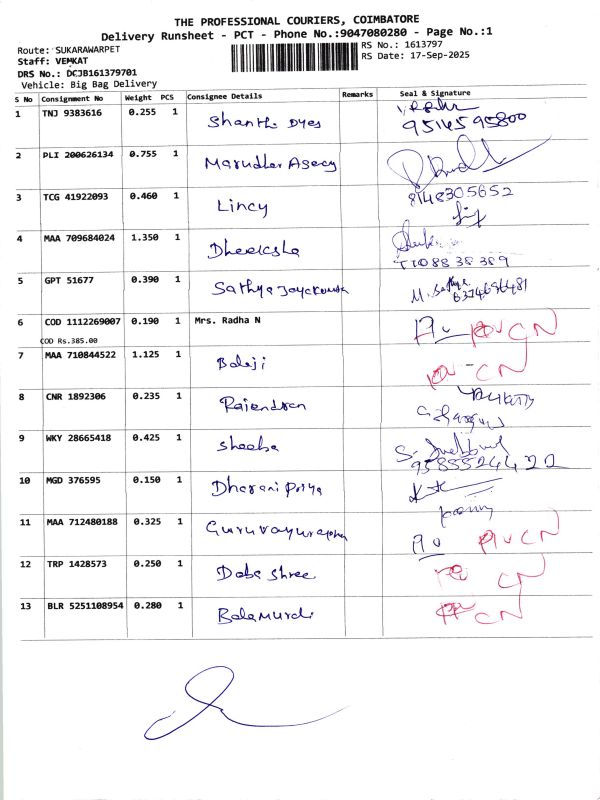 THE PROFESSIONAL COURIERS, COIMBATORE
Delivery Runsheet - PCT - Phone No.:9047080280 - Page No.:1
Route: SUKARAWARPET
RS No.: 1613797
Staff: VEMKAT
RS Date: 17-Sep-2025
DRS No.: DCJB161379701
Vehicle: Big Bag Delivery
S No Consignment No Weight PCS Consignee Details Remarks Seal & Signature
1 TNJ 9383616 0.255 1 Shanthi Dyes
9514595800
2 PLI 200626134 0.755 1 Marudhar Agency
3 TCG 41922093 0.460 1 Lincy 8148305652
4 MAA 709684024 1.350 1 Dheeksha
5 GPT 51677 0.390 1 Sathya M. Sathya
6374696481
6 COD 1112269007 0.190 1 Mrs. Radha N CN
COD Rs.385.00
7 MAA 710844522 1.125 1 Balaji CN
8 CNR 1892306 0.235 1 Rajendran
9 WKY 28665418 0.425 1 Sheeba
10 MGD 376595 0.150 1 Dharani Priya
11 MAA 712480188 0.325 1 CN
12 TRP 1428573 0.250 1 Shree CN
13 BLR 5251108954 0.280 1 CN